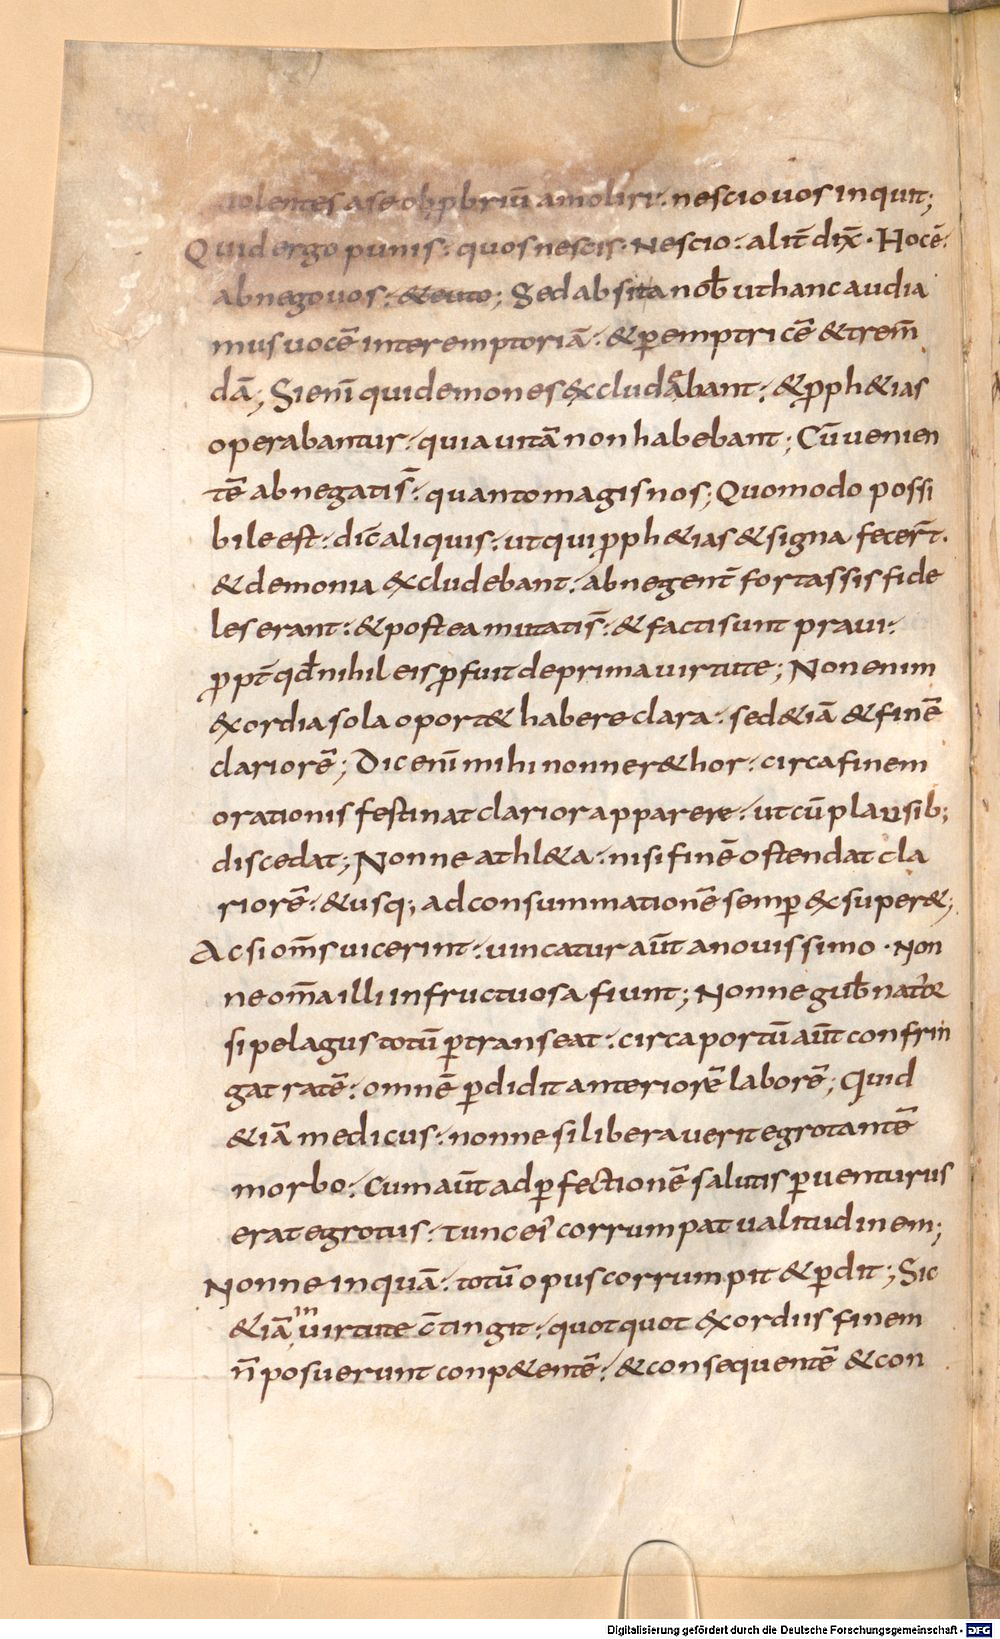 uolentes a se obpbriū amoliri · nescio uos inquit;
Quid ergo punis · quos nescis · Nescio · alit̄ dix̄ · Hoc ē ·
abnego uos · & euito; Sed absit a nob̄ ut hanc audia
mus uocē interemptoriā · & p̱emptricē & trem̄
dā; Si enī qui demones excludabant · & p̱ph&ias
operabantur · quia uitā non habebant; Cū uenien
tē abnegatis̄ · quanto magis nos; Quomodo possi
bile est · dic̄ aliquis · ut qui p̱ph&ias & signa fecer̄t ·
& demonia excludebant · abnegent̄ fortassis fide
les erant · & postea mutatis̄ · & facti sunt praui ·
p̱pt̄ qd̄ nihil eis p̱fuit de prima uirtute; Non enim
exordia sola oport& habere clara · sed &iā & finē
clariorē; Dic enī mihi nonne r&hor · circa finem
orationis festinat clarior apparere · ut cū plausib;
discedat; Nonne athl&a · nisi finē ostendat cla
riorē · & usq; ad consummationē semp̱ exsuper&;
Ac si om̄s uicerint · uincatur aūt a nouissimo · Non
ne om̄a illi infructuosa fiunt; Nonne gub̄nator
si pelagus totū p̱transeat · circa portū aūt confrin
gat ratē · omnē p̱didit anteriorē laborē; Quid
&iā medicus · nonne si liberauerit egrotantē
morbo · Cum aūt ad p̱fectionē salutis p̱uenturus
erat egrotus · tunc ei corrumpat ualitudinem;
Nonne inquā · totū opus corrumpit & p̱dit; Sic
&iā in uirtute c̄tingit · quotquot exordiis finem
n̄ posuerunt conp&entē · & consequentē & con
Digitalisierung gefördert durch die Deutsche Forschungsgemeinschaft - DFG